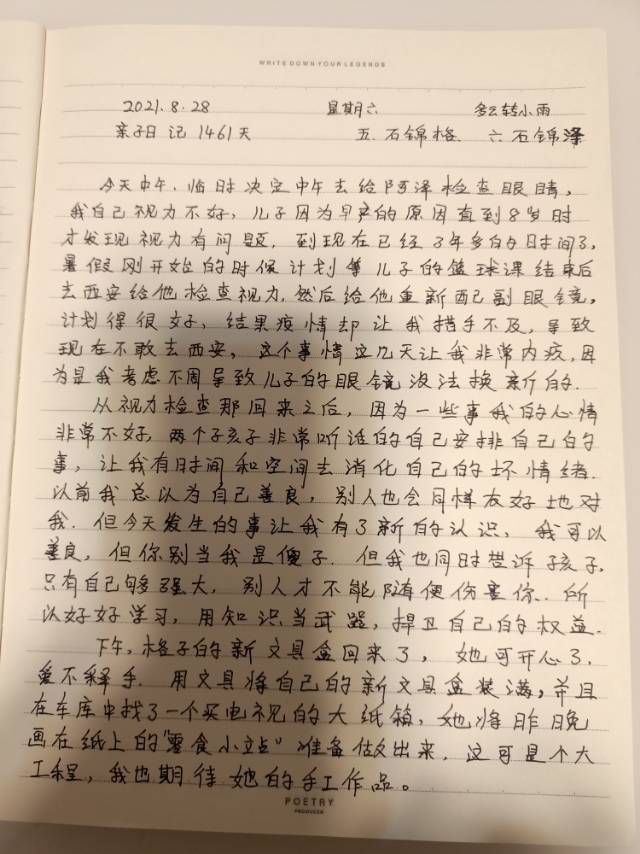 WRITE DOWN YOUR LEGENDS
2021.8.28 星期六 多云转小雨
亲子日记 1461天 五.石锦格 六石锦泽
今天中午,临时决定中午去给阿泽检查眼睛,
我自己视力不好,儿子因为早产的原因直到8岁时
才发现视力有问题,到现在已经3年多的时间了,
暑假刚开始的时候计划等儿子的篮球课结束后
去西安给他检查视力,然后给他重新配副眼镜,
计划得很好,结果疫情却让我措手不及,导致
现在不敢去西安,这个事情这几天让我非常内疚,因
为是我考虑不周导致儿子的眼镜没法换新的.
从视力检查那回来之后,因为一些事我的心情
非常不好,两个孩子非常听话的自己安排自己的
事,让我有时间和空间去消化自己的坏情绪.
以前我总以为自己善良,别人也会同样友好地对
我.但今天发生的事让我有了新的认识,我可以
善良,但你别当我是傻子.但我也同时告诉孩子,
只有自己够强大,别人才不能随便伤害你.所
以好好学习,用知识当武器,捍卫自己的权益.
下午,格子的新文具盒回来了,她可开心了,
爱不释手.用文具将自己的新文具盒装满,并且
在车库中找了一个买电视的大纸箱,她将昨晚
画在纸上的“零食小站”准备做出来,这可是个大
工程,我也期待她的手工作品。
POETRY
PRODUCER